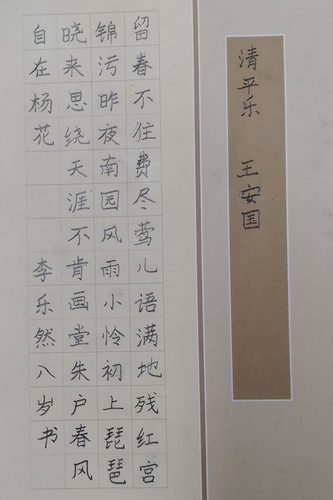 清平乐 王安国
留春不住费尽莺儿语满地残红宫
锦污昨夜南园风雨小怜初上琵琶
晓来思绕天涯不肯画堂朱户春风
自在杨花 李乐然八岁书